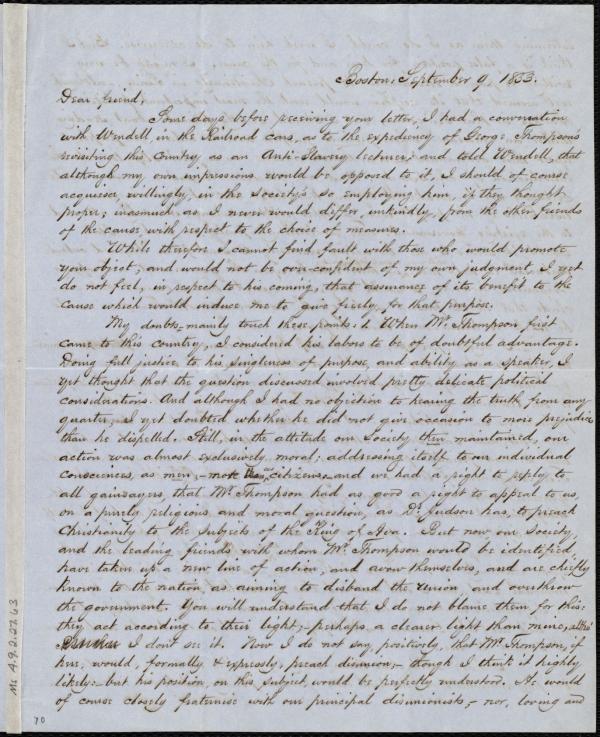 Boston, September 9, 1853.
Dear friend,
Some days before receiving your letter, I had a conversation
with Wendell, in the Railroad cars, as to the expediency of George Thompson's
revisiting this Country, as an Anti-Slavery lecturer; and told Wendell, that
although my own impressions would be opposed to it, I should of course
acquiesce willingly, in the Society's so employing him, if they thought
proper; inasmuch as I never would differ, unkindly, from the other friends
of the cause with respect to the choice of measures.
While therefore I cannot find fault with those who would promote
your object; and would not be over-confident of my own judgment, I yet
do not feel, in respect to his coming, that assurance of its benefit to the
Cause which would induce me to give freely, for that purpose.
My doubts mainly touch these points: 1. When Mr. Thompson first
came to this country, I considered his labors to be of doubtful advantage.
Doing full justice to his singleness of purpose, and ability as a speaker, I
yet thought that the question discussed involved pretty delicate political
considerations. And although I had no objection to hearing the truth from any
quarter, I yet doubted whether he did not give occasion to more prejudice
than he dispelled. Still, in the attitude our Society then maintained, our
action was almost exclusively moral; addressing itself to our individual
consciences, as men, - not as citizens - and we had a right to reply to
all gainsayers, that Mr. Thompson had as good a right to appeal to us,
on a purely religious and moral question, as Dr. Judson has, to preach
Christianity to the subjects of the King of Ava. But now our Society,
and the leading friends with whom Mr. Thompson would be identified,
have taken up a new line of action, and avow themselves, and are chiefly
known to the nation, as aiming to disband the union, and overthrow
the government. You will understand that I do not blame them for this:
they act according to their light; - perhaps a clearer light than mine, altho'
I dont see it. Now I do not say, positively, that Mr. Thompson, if
here, would, formally & expressly, preach disunion, - though I think it highly
likely: - but his position, on this subject, would be perfectly understood. He would
of course closely fraternise with our principal disunionists, - nor, loving and
Ms A.9.2.27.63
70